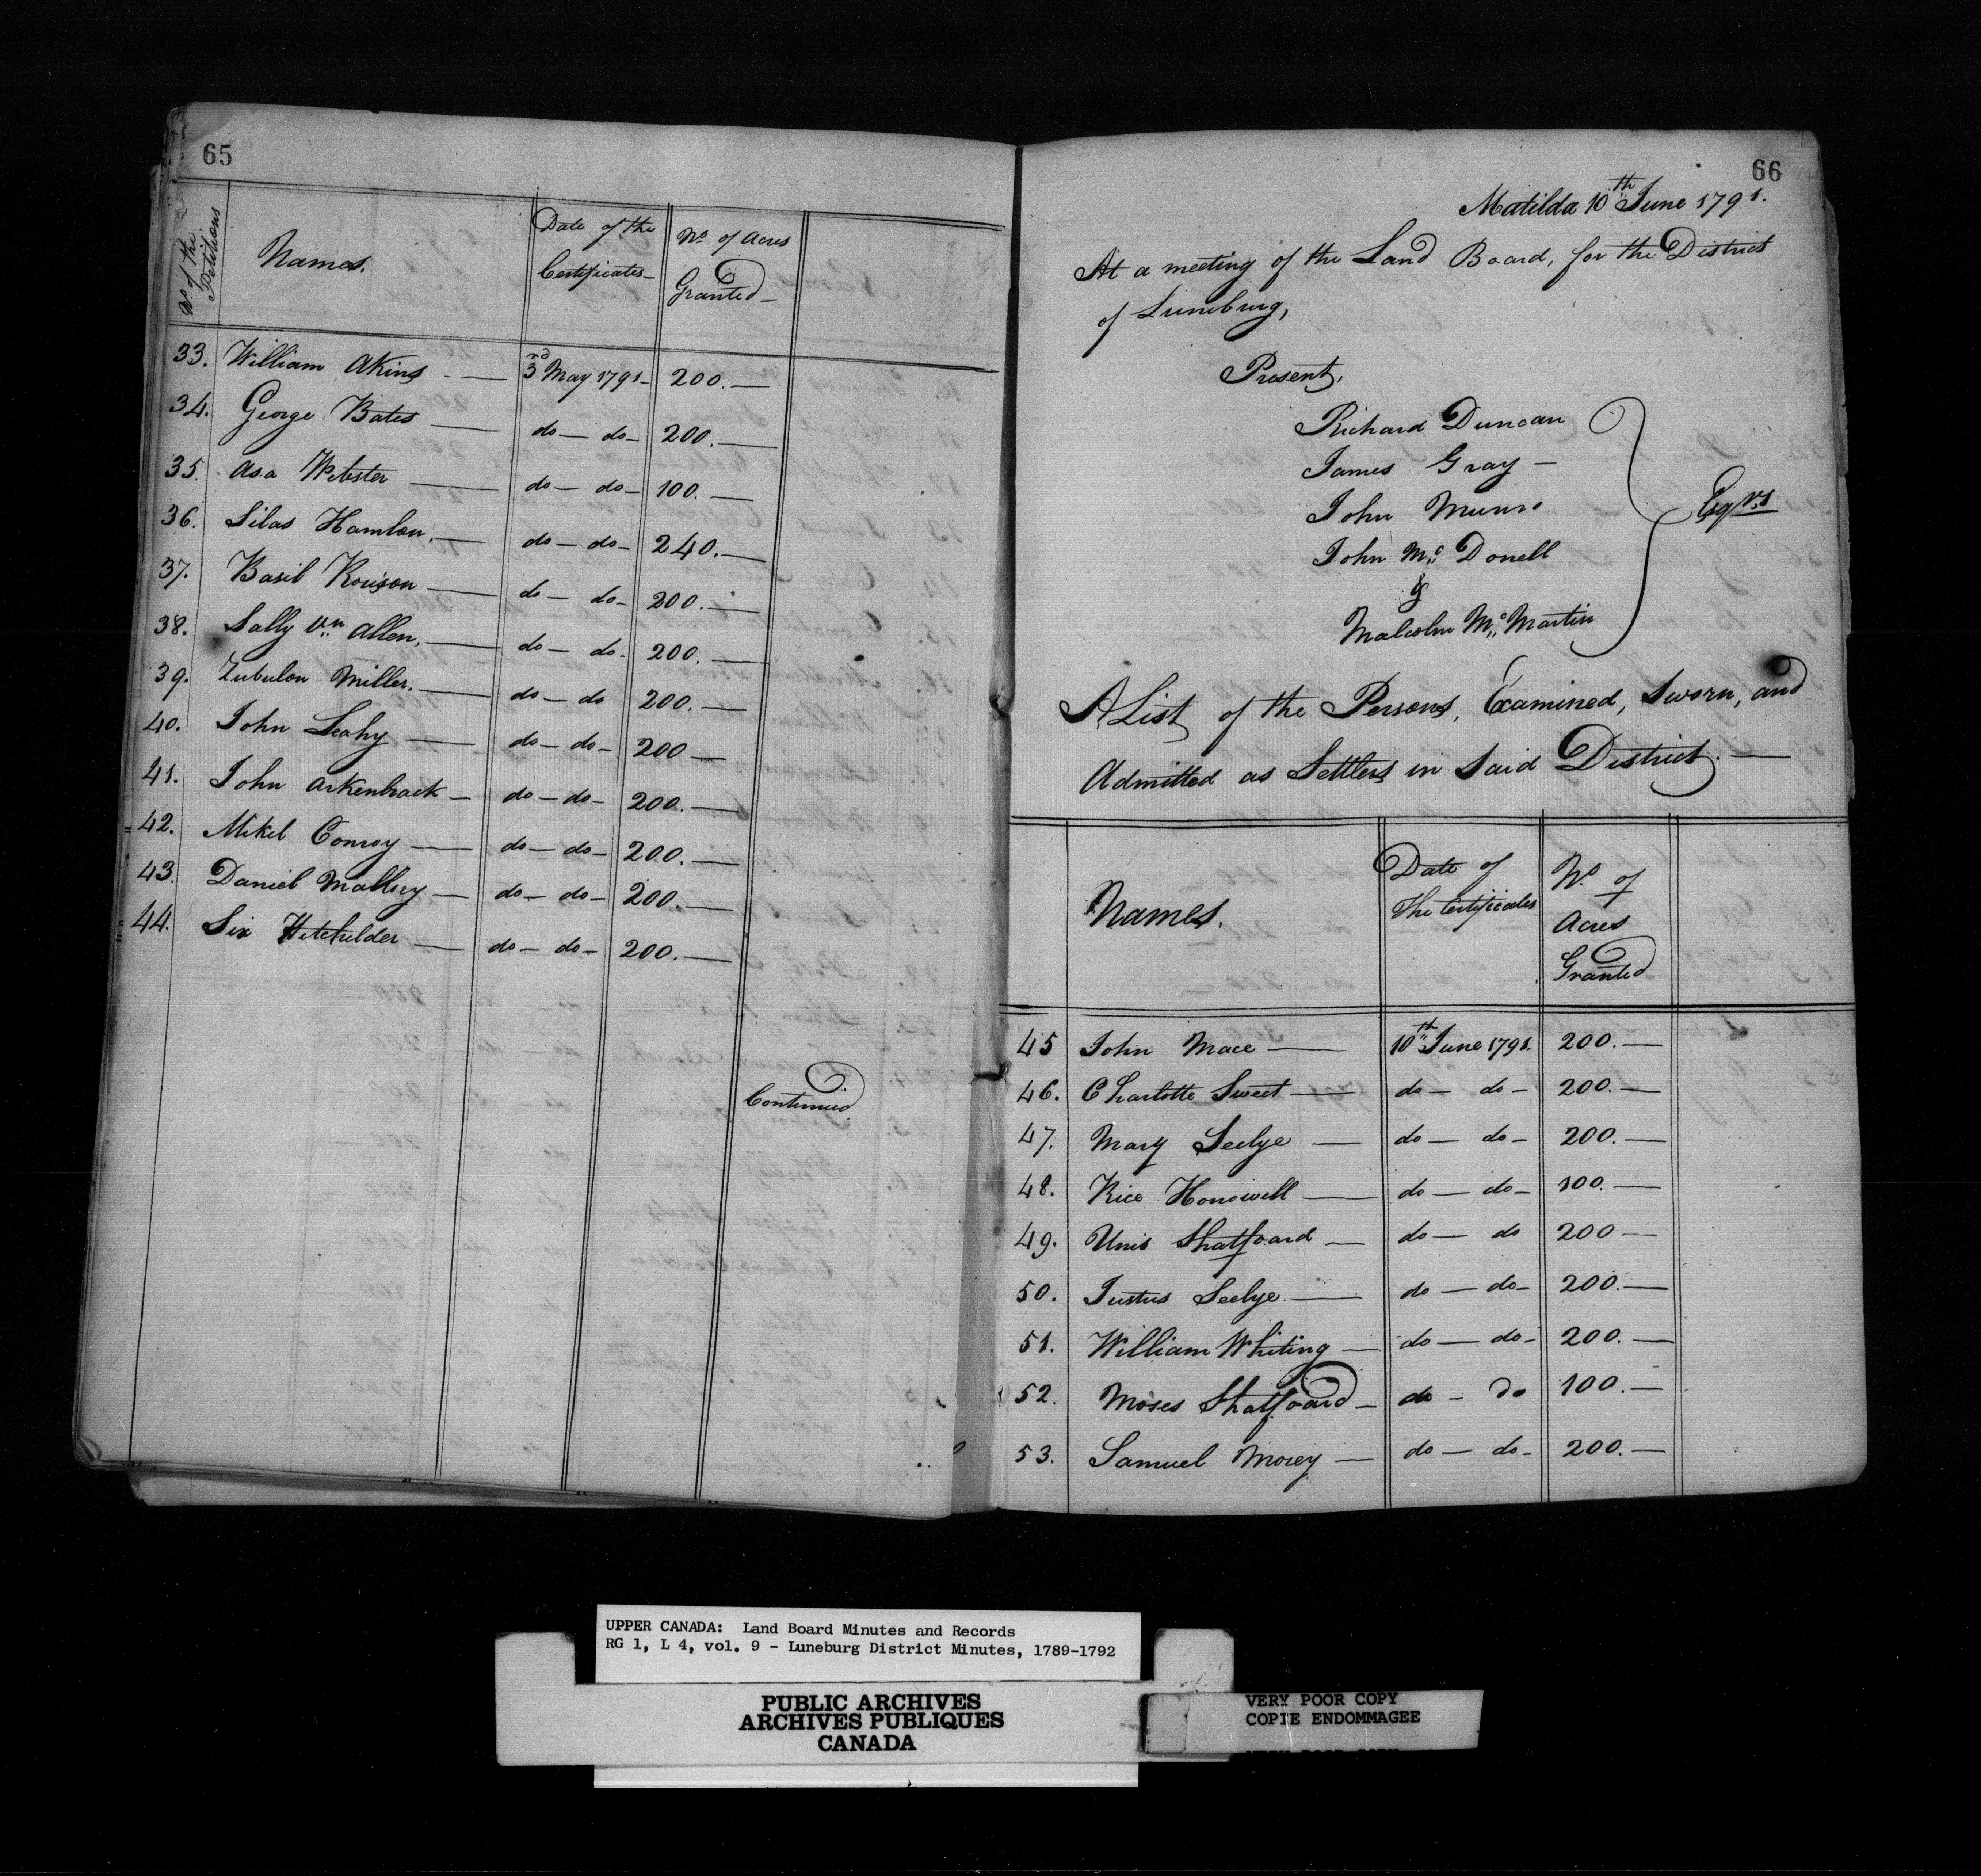 65
No. of the Petitions
Names.
Date of the Certificates
No. of Acres Granted
33. William Akins — 3rd May 1791 — 200. —
34. George Bates — do — do — 200. —
35. Asa Webster — do — do — 100. —
36. Silas Hamlon. — do — do — 240. —
37. Basil Rorison — do — do — 200. —
38. Sally Vn Allen. — do — do — 200. —
39. Zubulon Miller. — do — do 200. —
40. John Leahy — do — do — 200 —
41. John Arkenbrack — do — do — 200. —
42. Mikel Conroy — do — do — 200. —
43. Daniel Mallery — do — do — 200. —
44. Six — do — do — 200. —
Continued.
66
Matilda 10th June 1791.
At a meeting of the Land Board, for the District
of Luneburg,
Present,
Richard Duncan
James Gray —
John Munro
John Mc Donell
&
Malcolm Mc Martin
Esqrs
A List of the Persons, Examined, Sworn, and
Admitted as Settlers in Said District. —
Names.
Date of The Certificates
No. of Acres Granted
45 John Mace — 10th June 1791. 200. —
46. Charlotte Sweet — do — do — 200. —
47. Mary Seelye — do — do — 200. —
48. Rice Honowell — do — do — 100. —
49. Unis Shatfoard — do — do 200 —
50. Justus Seelye. — do — do — 200. —
51. William Whiting — do — do — 200. —
52. Moses Shatfoard — do — do 100. —
53. Samuel Morey — do — do — 200. —
UPPER CANADA: Land Board Minutes and Records
RG 1, L 4, vol. 9 - Luneburg District Minutes, 1789-1792
PUBLIC ARCHIVES
ARCHIVES PUBLIQUES
CANADA
VERY POOR COPY
COPIE ENDOMMAGEE